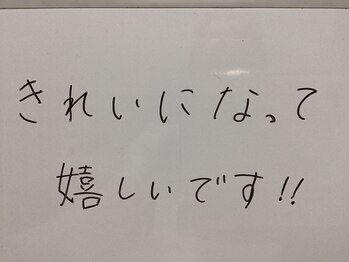 きれいになって
嬉しいです!!